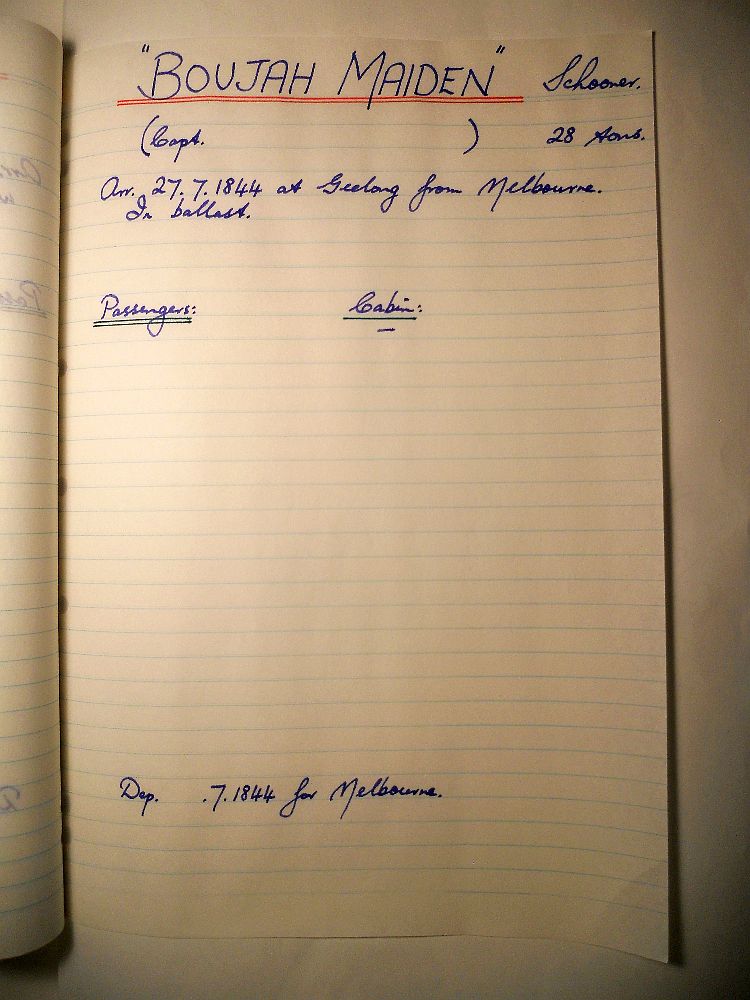 "BOUJAH MAIDEN" Schooner.
(Capt. ) 28 tons.
Arr. 27.7.1844 at Geelong from Melbourne.
In ballast.
Passengers: Cabin:
—
Dep. .7.1844 for Melbourne.